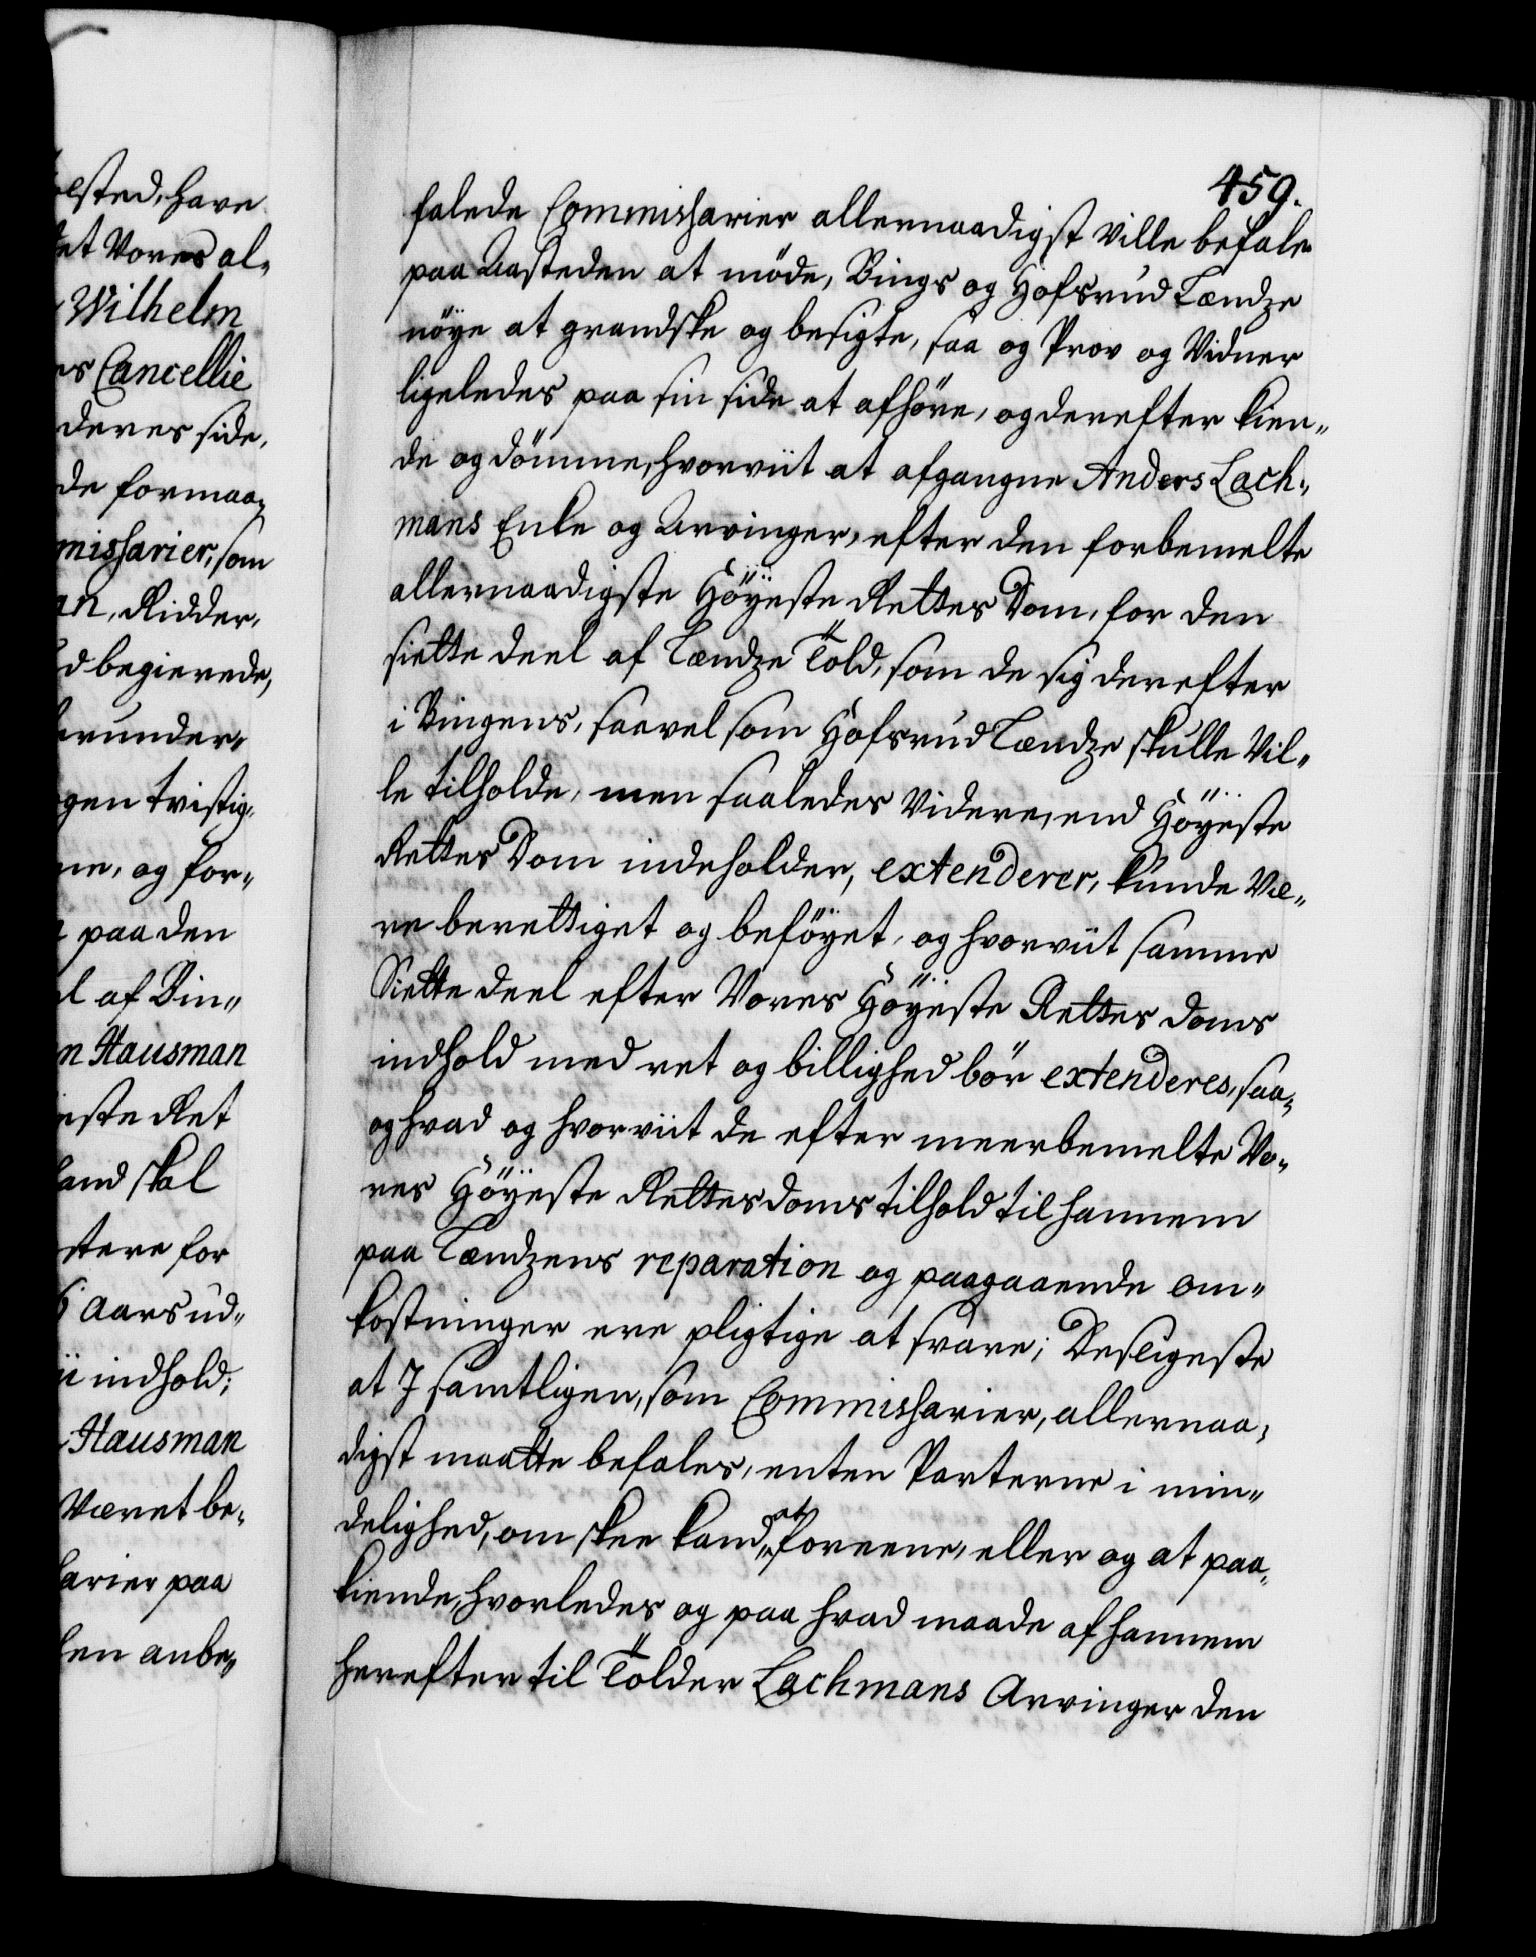 olsted, have
et Vores al-
Wilhelm
es Cancellie
deres side,
de formaa-
misharier, som
an, Ridder,
d begierede,
erunder-
gen tvistig-
ne, og for-
paa den
l af Bin-
n Hausman
este Ret
and skal
stere for
6 Aars ud-
ii indhold;
Hausman
Været be-
arier paa
en anbe-
459.
falede Commisharier allernaadigst ville befale
paa Aasteden at møde, Bings og Hofsrud Lændze
nöye at grandske og besigte, saa og Prov og Vidner
ligeledes paa sin side at afhöre, og derefter kien-
de og dömme, hvorviit at afgangne Anders Lach-
mans Enke og Arvinger, efter den forbemelte
allernaadigste Höyeste Rettes Dom, for den
siette deel af Lændze Told, som de sig derefter
i Bingens, saavel som Hofsrud Lændze skulle Vil-
le tilholde, men saaledes Videre, end Höyeste
Rettes Dom indeholder, extenderer, kunde Væ-
re berettiget og beföyet, og hvorviit samme
Siette deel efter Vores Höyeste Rettes doms
indhold med ret og billighed bör extenderes, saa-
og hvad og hvorviit de efter meerbemelte Vo-
res Höyeste Rettes doms tilhold til hannem
paa Lændzens reparation og paagaaende om-
kostninger ere pligtige at svare; Desligeste
at I samtligen, som Commisharier, allernaa-
digst maatte befales, enten Parterne i min-
delighed, om skee kand, at foreene, eller og at paa-
kiende, hvorledes og paa hvad maade af hannem
herefter til Tolder Lachmans Arvinger den